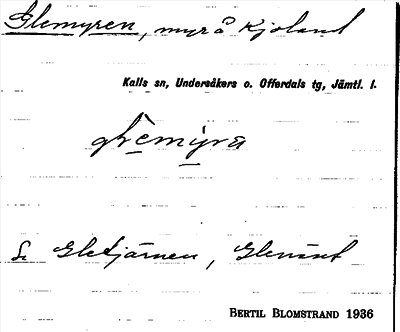 Glemyren, myr å Kjoland
Kalls sn, Undersåkers o. Offerdals tg, Jämtl. l.
glemyra
Se Gletjärnen, Glenäset
BERTIL BLOMSTRAND 1936